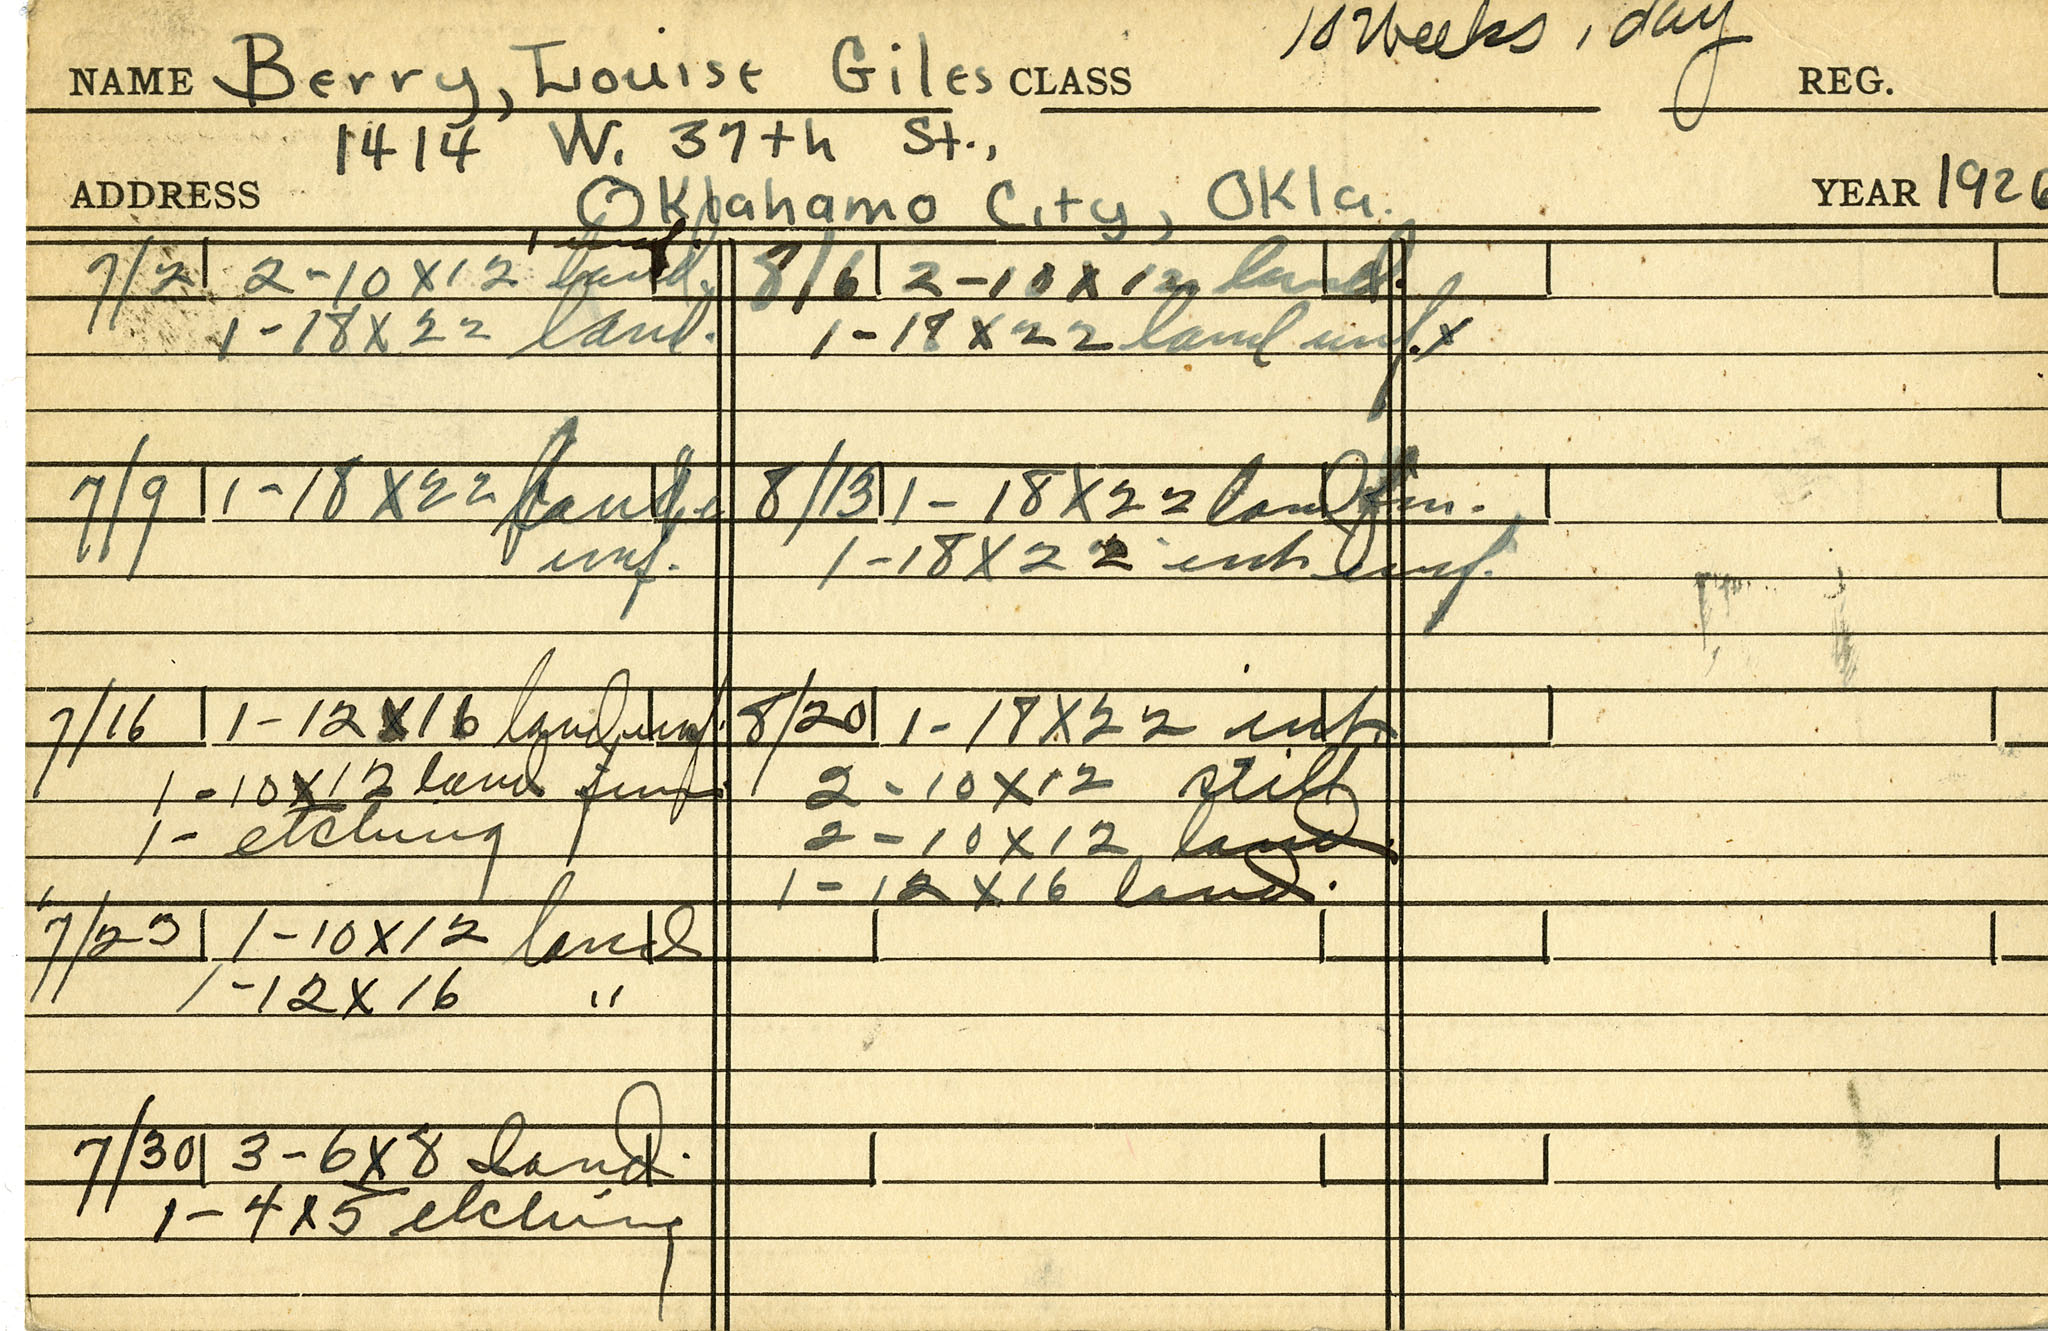 10 Weeks, day
NAME Berry, Louise Giles CLASS REG.
1414 W. 37th St.,
ADDRESS Oklahamo City, Okla. YEAR 1926
1 unf.
7/2 2-10X12 land.
1-18X22 land.
7/9 1-18X22 land.
unf.
7/16 1-12X16 land unf.
1-10X12 land unf.
1- etching
7/23 1-10X12 land
1-12X16 "
7/30 3-6X8 land.
1-4X5 etching
8/6 2-10X12 land.
1-18X22 land unf. x
8/13 1-18X22 land fin.
1-18X22 int unf.
8/20 1-18X22 int
2-10X12 still
2-10X12 land.
1-12X16 land.